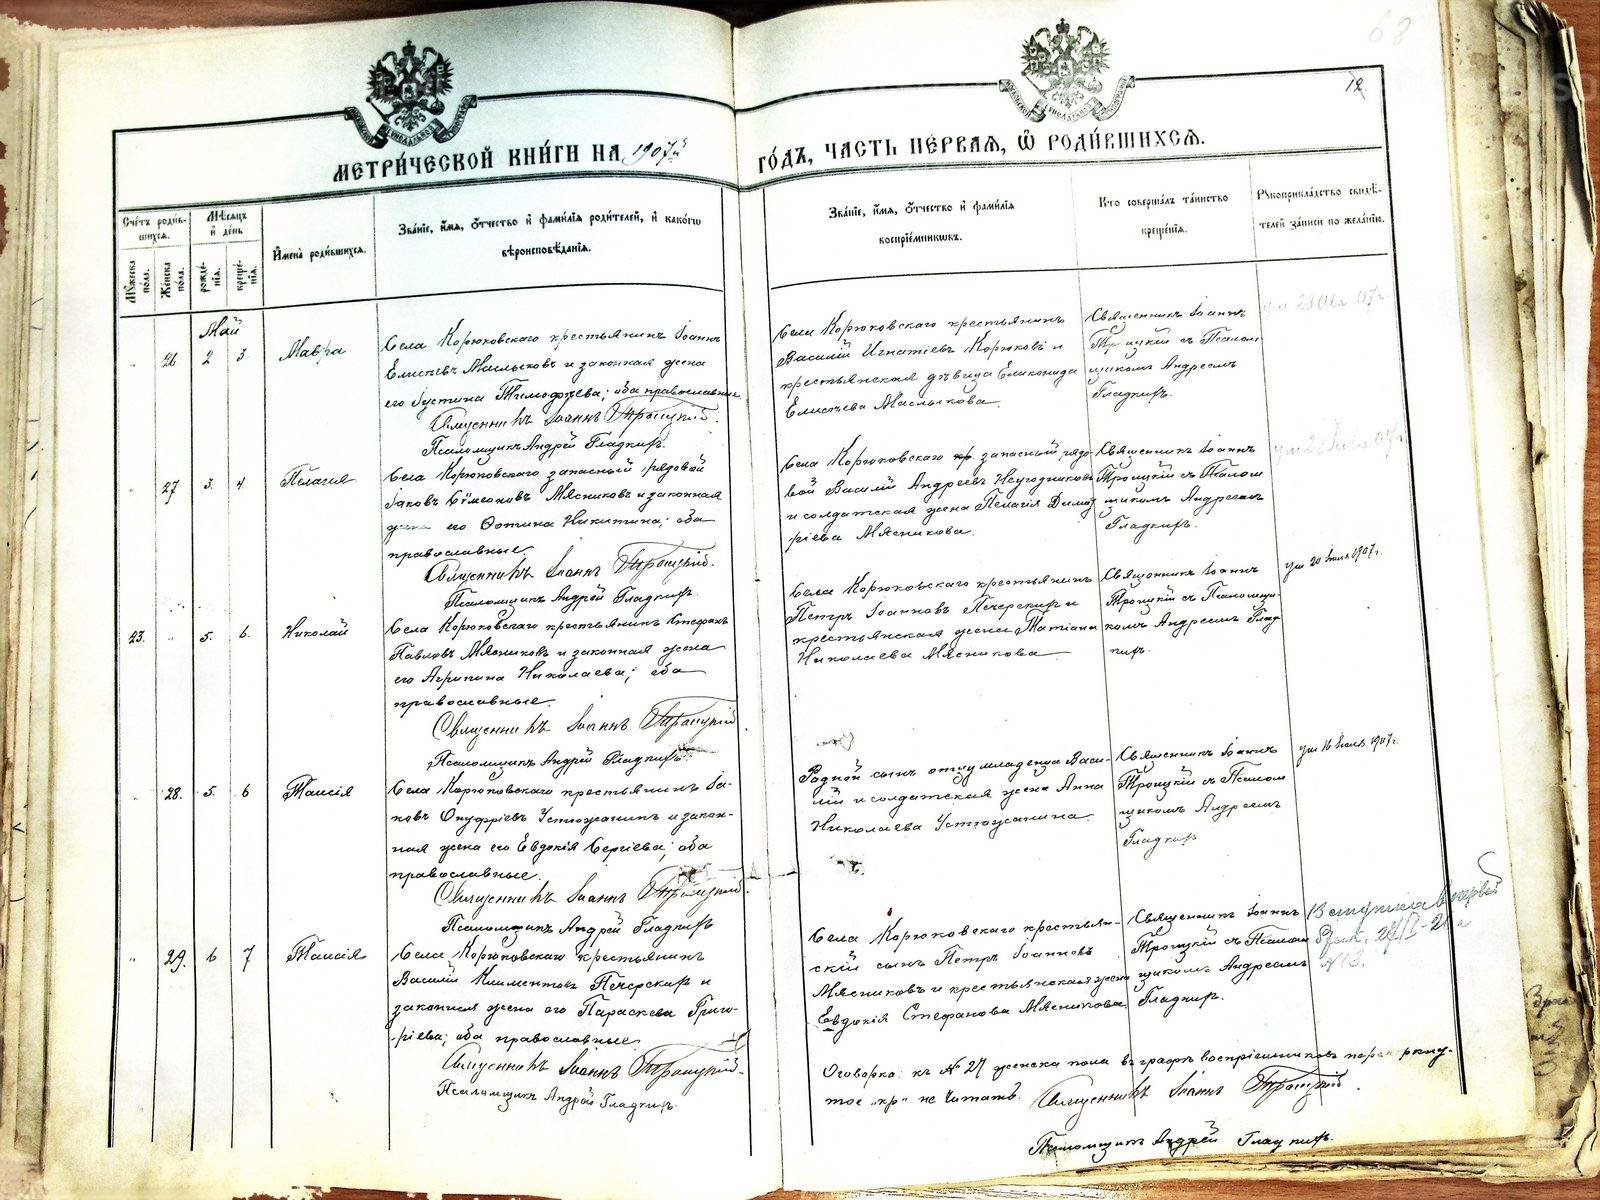 68
12
МЕТРИ́ЧЕСКОЙ КНИ́ГИ НА 1907й ГО́ДЪ, ЧАСТЬ ПЕ́РВАЯ, Ѿ РОДИ́ВШИХСѦ.
Сче́тъ роди́в-
шихсѧ.
Мѣ́сѧцъ
и҆ де́нь
Мꙋ́жеска по́ла.
Же́нска по́ла.
рожде́-нїѧ.
креще́-нїѧ.
И҆мена̀ роди́вшихсѧ.
Зва́нїе, и҆́мѧ, ѻ҆́тчество и҆ фами́лїѧ роди́телей, и҆ како́гѡ
вѣроисповѣ́данїѧ.
Зва́нїе, и҆́мѧ, ѻ҆́тчество и҆ фами́лїѧ
воспрїе́мникѡвъ.
Кто̀ соверша́лъ та́инство
креще́нїѧ.
Рꙋкоприкла́дство свидѣ́-
телей за́писи по жела́нїю.
Май
26 2 3
Мавра
Села Корюковскаго крестьянинъ Іоаннъ
Елисѣевъ Маслыковъ и законная жена
его Іустина Тимофѣева; оба православные.
Священникъ Іоаннъ Троицкій.
Псаломщикъ Андрей Гладкихъ.
Села Корюковскаго крестьянинъ
Василій Игнатіевъ Корюковъ и
крестьянская дѣвица Еликонида
Елисѣева Маслыкова.
Священникъ Іоаннъ
Троицкій съ Псалом
щикомъ Андреемъ
Гладкихъ.
27 3. 4.
Пелагія
Села Корюковскаго запасный рядовой
Іаковъ Сѵмеоновъ Мясниковъ и законная
жена его Фотина Никитина; оба
православные.
Священникъ Іоаннъ Троицкій.
Псаломщикъ Андрей Гладкихъ.
Села Корюковскаго кр запасный рядо-
вой Василій Андреевъ Неугодниковъ
и солдатская жена Пелагія Димит
ріева Мясникова.
Священникъ Іоаннъ
Троицкій съ Псалом
щикомъ Андреемъ
Гладкихъ.
23. 5. 6.
Николай
Села Корюковскаго крестьянинъ Стефанъ
Павловъ Мясниковъ и законная жена
его Агрипина Николаева; оба
православные.
Священникъ Іоаннъ Троицкій
Псаломщикъ Андрей Гладкихъ
Села Корюковскаго крестьянинъ
Петръ Іоанновъ Печерскихъ и
крестьянская жена Татіана
Николаева Мясникова
Священникъ Іоаннъ
Троицкій съ Псаломщи-
комъ Андреемъ Глад
кихъ.
ум 20 Іюля 1907г.
28. 5. 6
Таисія
Села Корюковскаго крестьянинъ Іа-
ковъ Онуфріевъ Устюжанинъ и закон-
ная жена его Евдокія Сергіева; оба
православные.
Священникъ Іоаннъ Троицкій.
Псаломщикъ Андрей Гладкихъ
Родной сынъ отцу младенца Васи-
лій и солдатская жена Анна
Николаева Устюжанина.
Священникъ Іоаннъ
Троицкій съ Псалом
щикомъ Андреемъ
Гладкихъ
ум 16 Іюля 1907г.
29. 6 7
Таисія
Села Корюковскаго крестьянинъ
Василій Климентовъ Печерскихъ и
законная жена его Параскева Григо-
ріева; оба православные.
Священникъ Іоаннъ Троицкій.
Псаломщикъ Андрей Гладкихъ.
Села Корюковскаго крестьян-
скій сынъ Петръ Іоанновъ
Мясниковъ и крестьянская жена
Евдокія Стефанова Мясникова.
Священникъ Іоаннъ
Троицкій съ Псалом
щикомъ Андреемъ
Гладкихъ.
Вступила в первый
Оговорка: къ № 27 женска пола въ графѣ воспріемниковъ
тое „кр" не читать. Священникъ Іоаннъ Троицкій.
Псаломщикъ Андрей Гладкихъ.